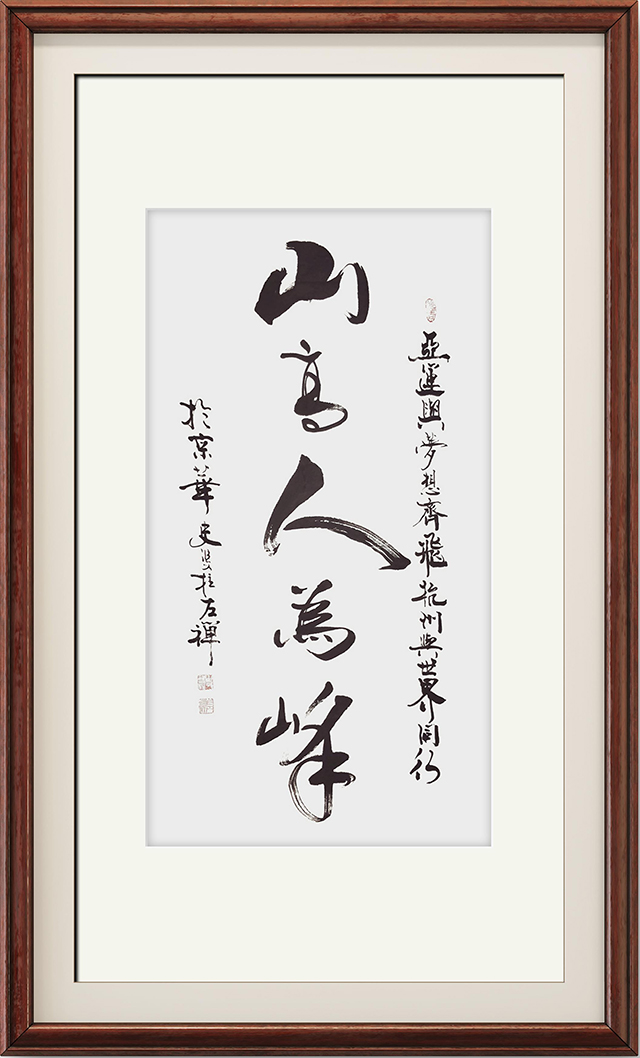 亞運與夢想齊飛杭州與世界同行
山高人為峰
於京華史雙柱左禪